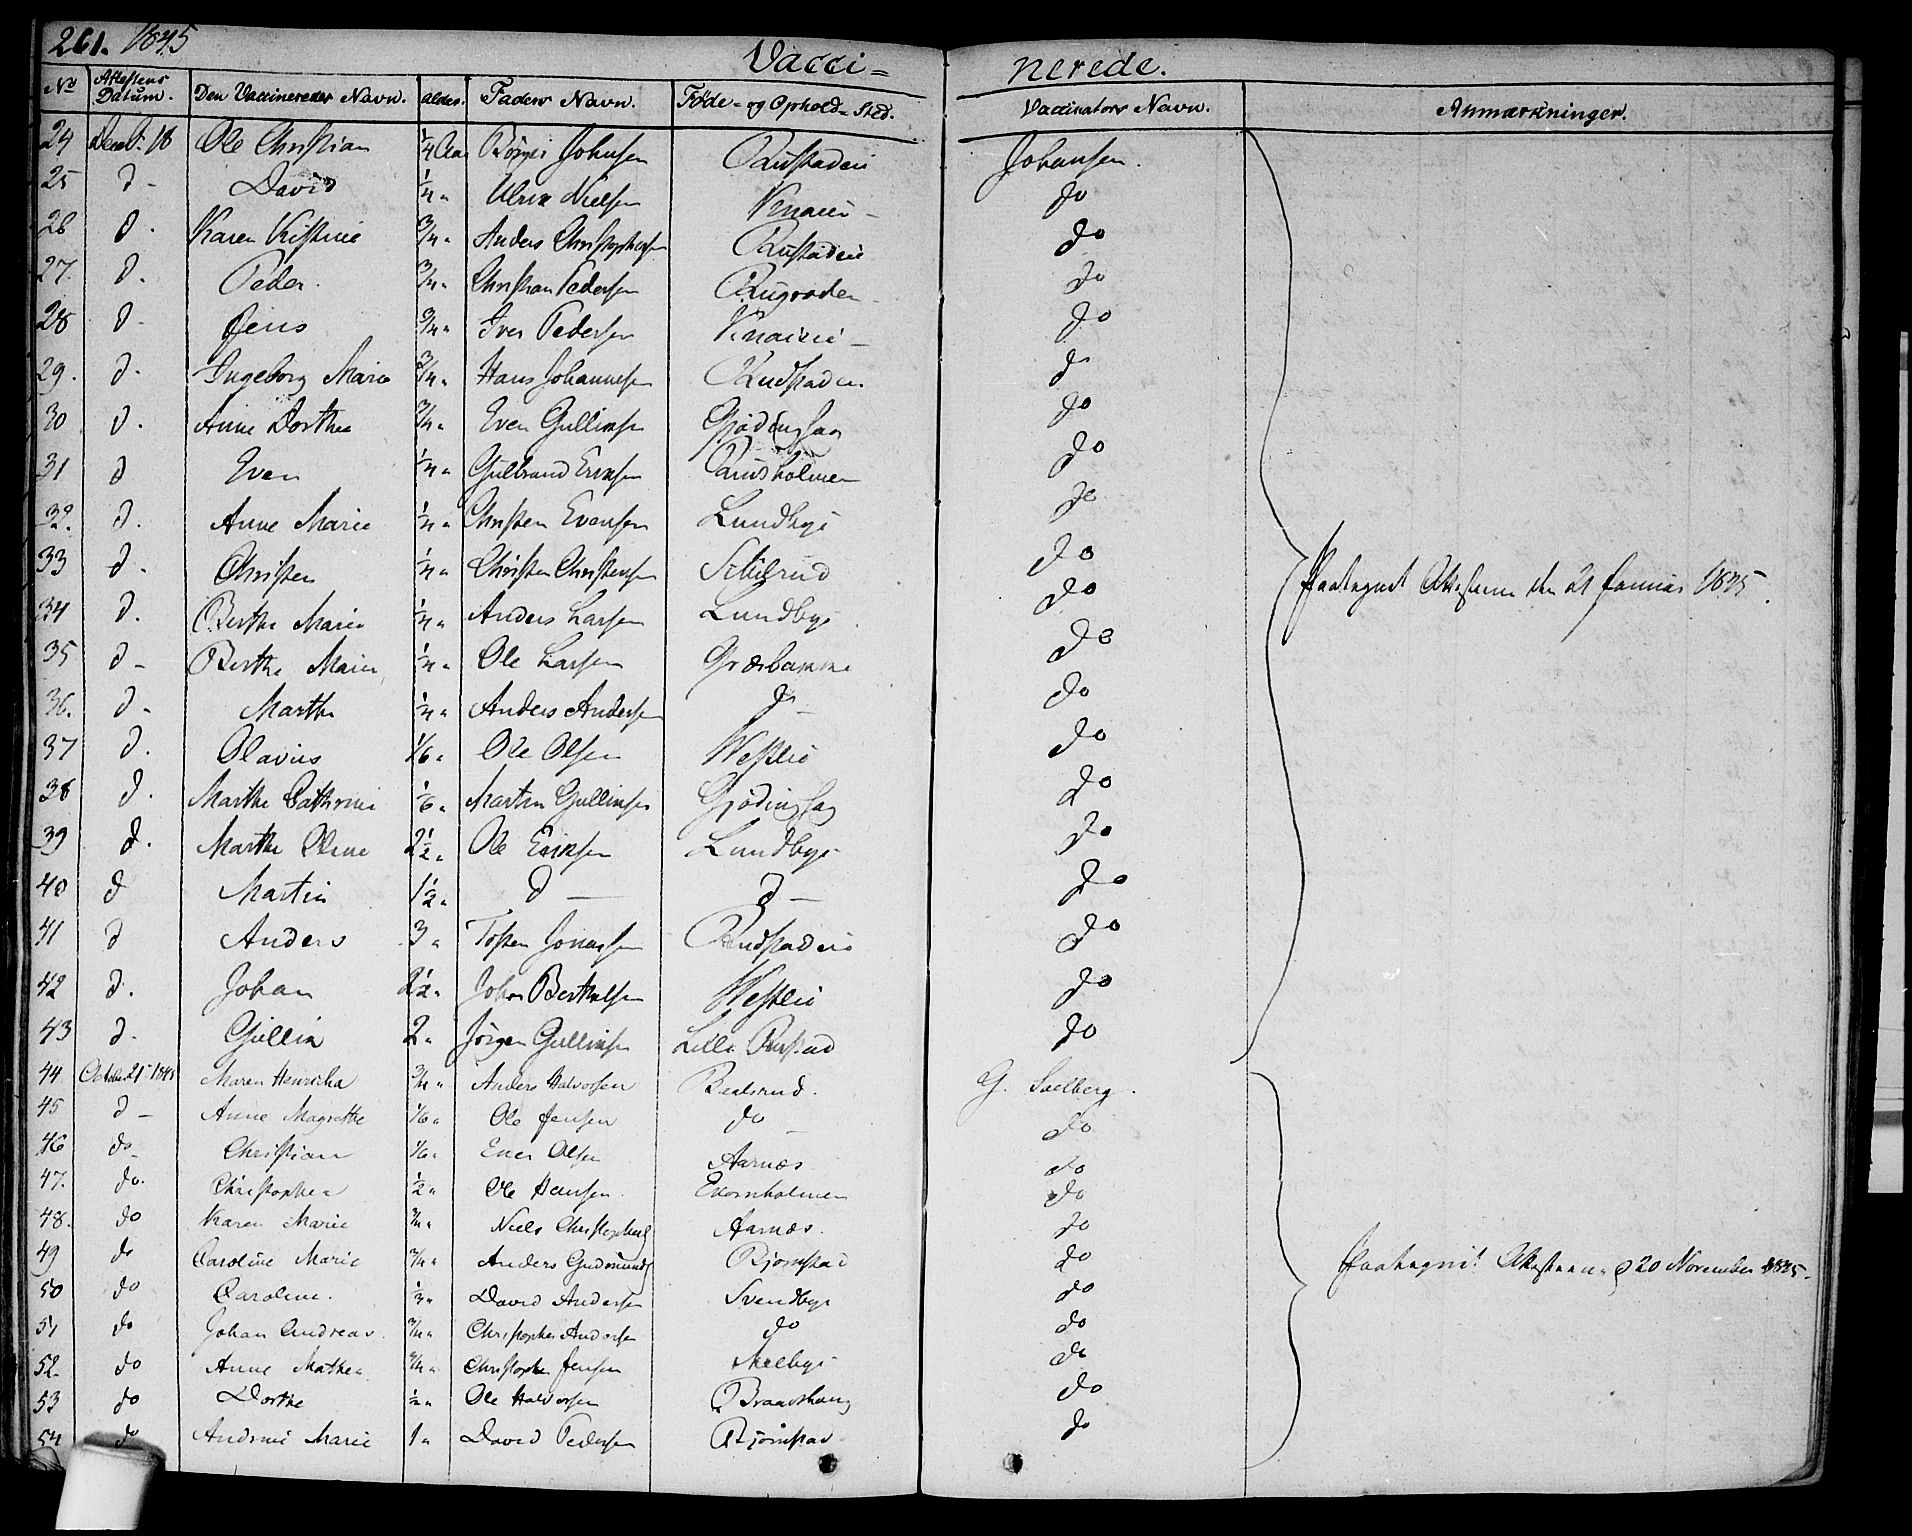 261. 1845
Vacci= nerede.
No Attestens Datum. Den Vaccineredes Navn. alder. Faders Navn. Føde- og Ophold-Sted. Vaccinators Navn. Anmærkninger.
24 Decbr. 18 Ole Christian 1/4 Aar Børger Johnsen Rustadeie Johansen.
25 d - David 1/4 " Ulrik Nielsen - do
26 d. Karen Kistine 3/4 " Anders Christophersen Rustadeie do
27. d. Peder. 3/4 " Christian Pedersen do
28 d - Jens 3/4 " Iver Pedersen - do
29. d. Ingeborg Marie 3/4 " Hans Johannesen Rudstadeie do
30 d. Anne Dorthea 3/4 " Even Gullinsen Gjødingsag do
31 d Even 1/4 " Gulbrand Eriksen do
32. d. Anne Marie 1/4 " Christen Evensen Lundbye do
33 d. Christen 1/4 " Christen Christensen do
34 d. Berthe Marie 1/4 " Anders Larsen Lundbye do
35 d - Berthe Marie 1/4 " Ole Larsen do
36. d - Marthe 1/4 " Anders Andersen do - do
37 d. Olavus 1/6 " Ole Olsen Westlie do
38 d. Marthe Cathrine 1/6 " Martin Gullinsen Gjødingsag do
39 d. Marthe Oline 2 1/2 " Ole Eriksen Lundbye do
40 d Martin 1 1/2 " d - d - do
41 d Anders 3 " Tosten Jonassen Rudstadeie do
42 d. Johan 2 1/2 " Johan Berthelsen Westlie do
43 d. Gullik 2 " Jørgen Gullinsen Lille Rustad do
Paategnet Attesterne den 21 Januar 1845.
44 October 21 - 1845 Maren Henricka 3/4 " Anders Halvorsen G. Solberg.
45 d - Anne Magrethe 1/6 " Ole Jensen do - do
46 do - Christian 1/6 " Even Olsen Aarnæs do
47. do. Christopher 1/2 " Ole Hansen. Ekornholmen do
48. do Karen Marie 3/4 " Niels Christophers Aarnæs. do
49 do Caroline Marie 3/4 " Anders Gudmunds Bjørnstad do
Paategnet Attesterne d 20 November 1845.
50 do Caroline. 1/3 " David Andersen Svendbye do
51 do Johan Andreas. 3/4 " Christopher Andersen do do
52. do Anne Mathea. 3/4 " Christopher Jensen do
53 do Dorthe 1/2 " Ole Halvorsen Braatehaug do
54 do Andrine Marie 1 " David Pedersen Bjørnstad do